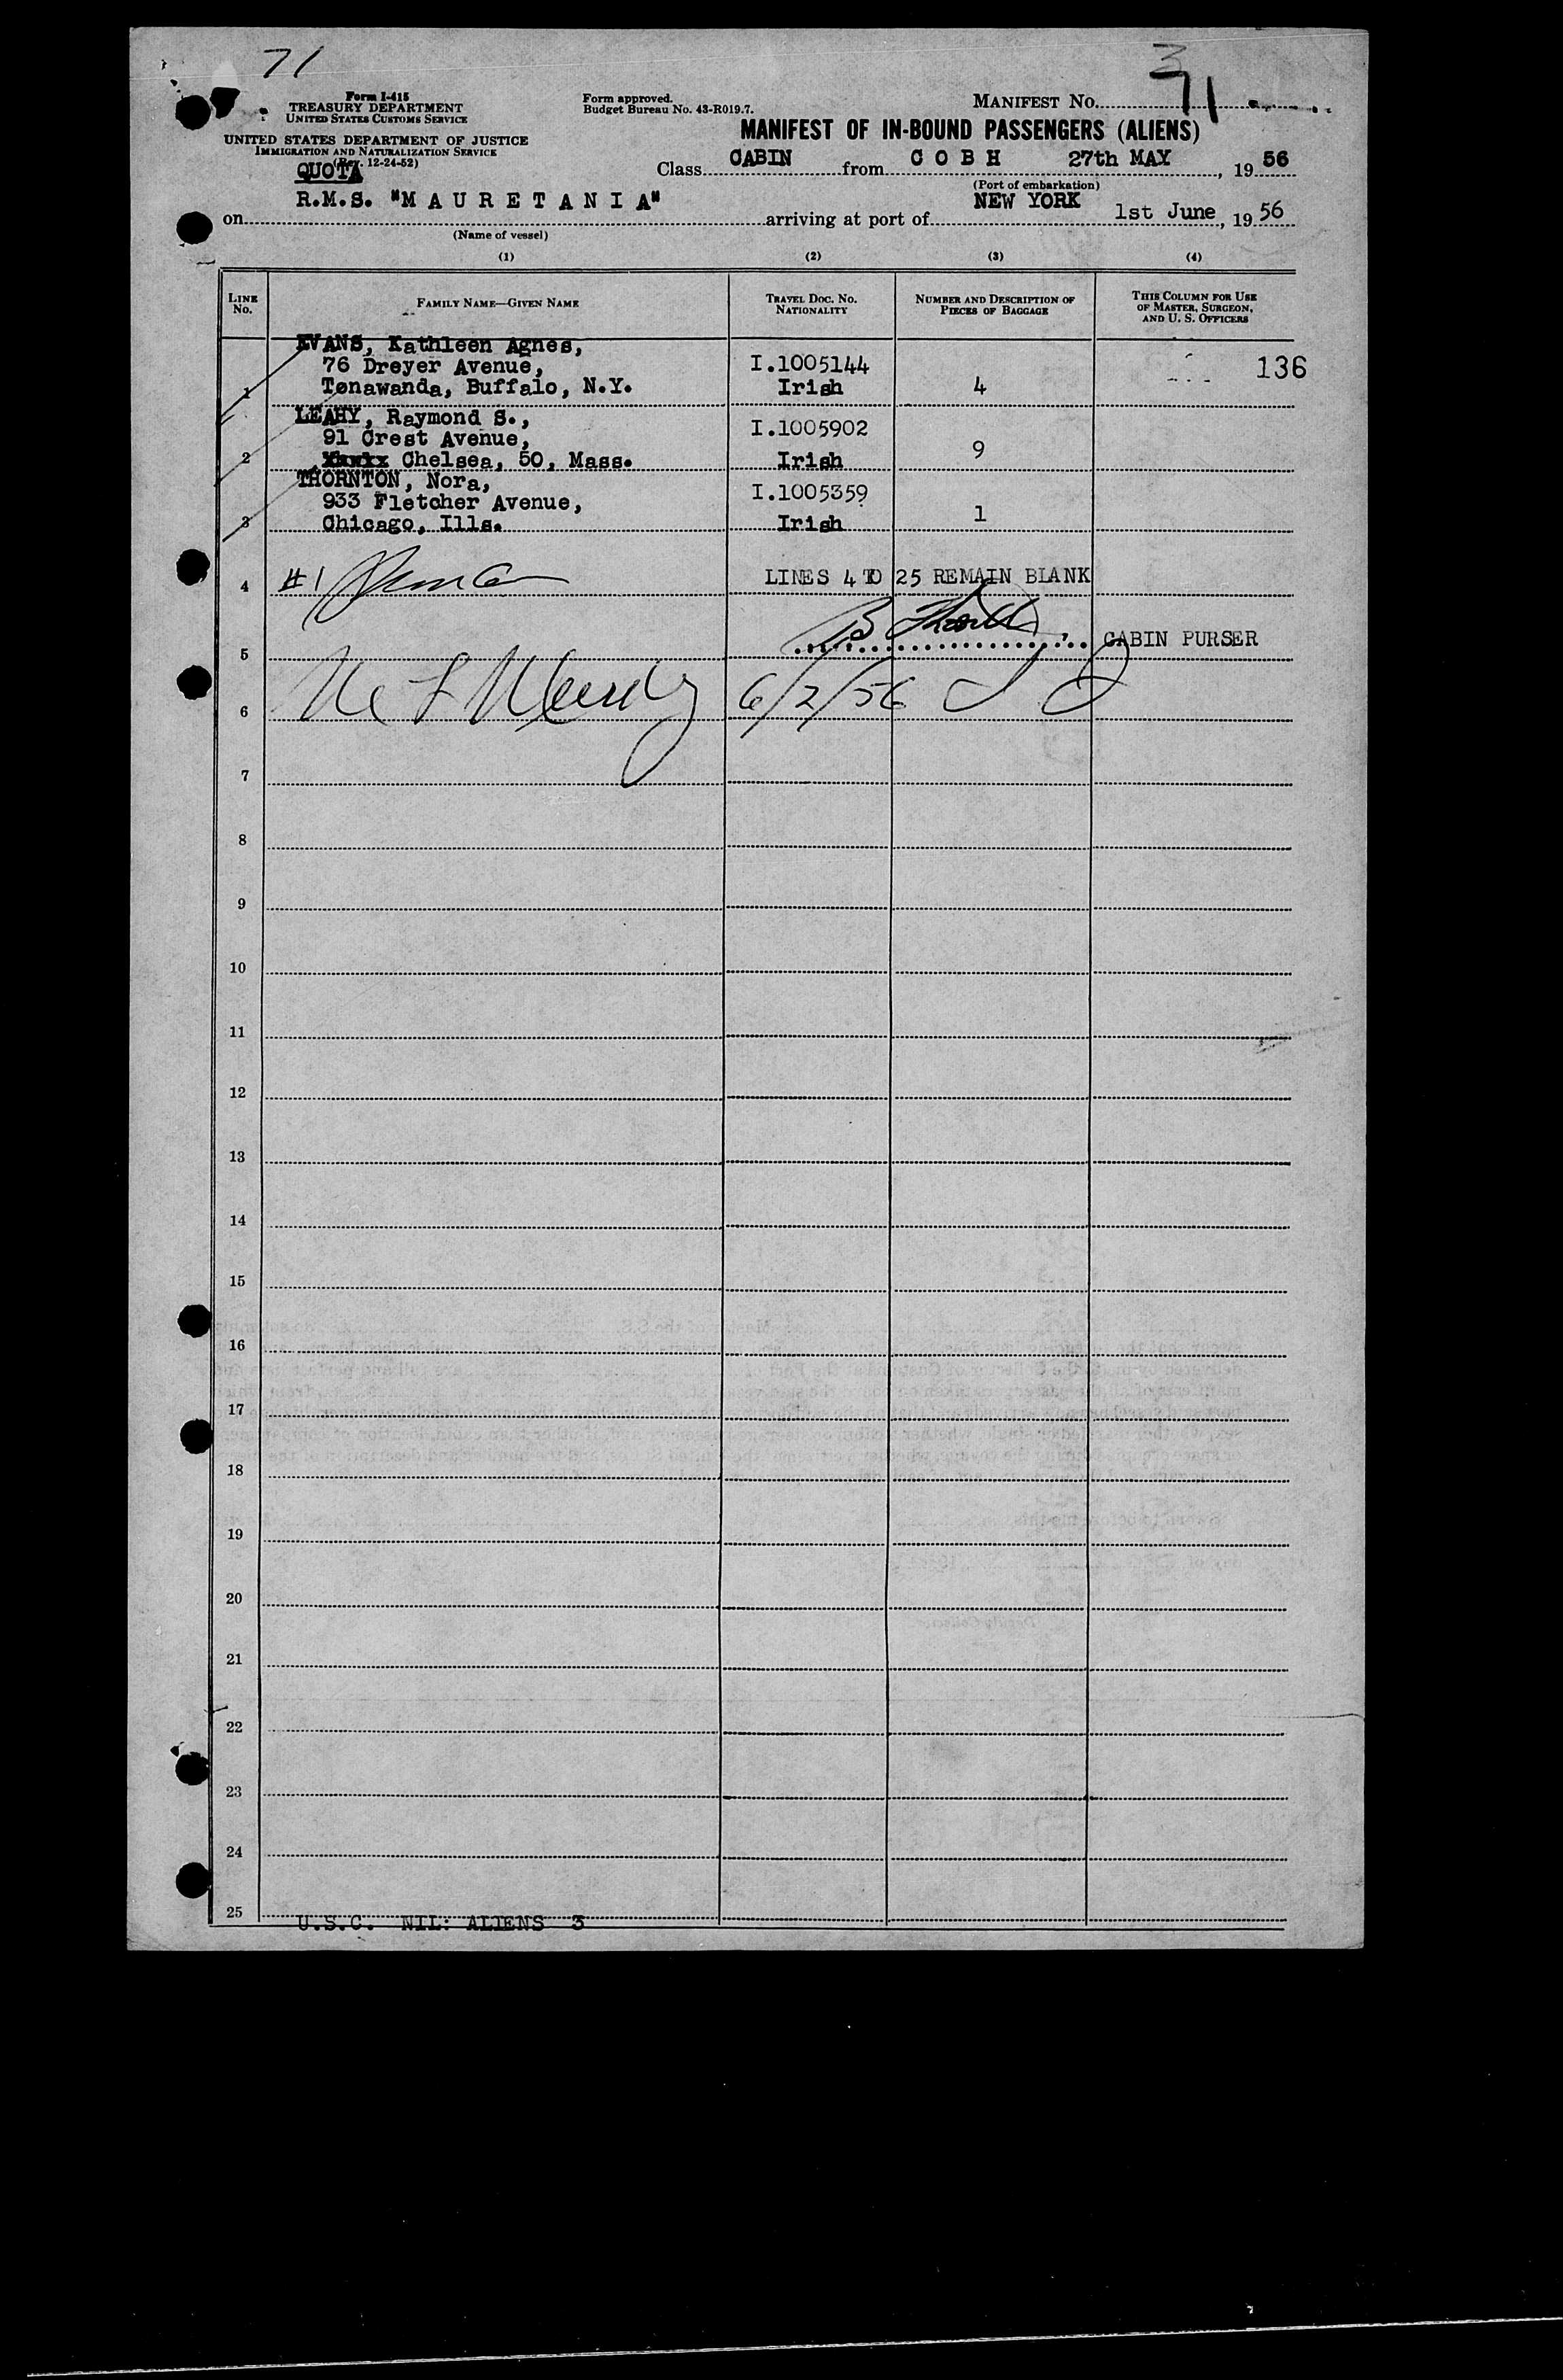 71
3
71
Form I-415
TREASURY DEPARTMENT
UNITED STATES CUSTOMS SERVICE
Form approved.
Budget Bureau No. 43-R019.7.
MANIFEST No.
UNITED STATES DEPARTMENT OF JUSTICE
IMMIGRATION AND NATURALIZATION SERVICE
(Rev. 12-24-52)
MANIFEST OF IN-BOUND PASSENGERS (ALIENS)
QUOTA
Class CABIN from C O B H 27th MAY, 19 56
(Port of embarkation)
on R.M.S. "M A U R E T A N I A" arriving at port of NEW YORK 1st June, 19 56
(Name of vessel)
(1) (2) (3) (4)
LINE No. FAMILY NAME—GIVEN NAME TRAVEL DOC. No. NATIONALITY NUMBER AND DESCRIPTION OF PIECES OF BAGGAGE THIS COLUMN FOR USE OF MASTER, SURGEON, AND U. S. OFFICERS
EVANS, Kathleen Agnes,
76 Dreyer Avenue, I.1005144 136
1 Tonawanda, Buffalo, N.Y. Irish 4
LEAHY, Raymond S.,
91 Crest Avenue, I.1005902
2 Chelsea, 50, Mass. Irish 9
THORNTON, Nora,
933 Fletcher Avenue, I.1005359
3 Chicago, Ills. Irish 1
4 #1 LINES 4 TO 25 REMAIN BLANK
5 CABIN PURSER
6 6/2/56
7
8
9
10
11
12
13
14
15
16
17
18
19
20
21
22
23
24
25
U.S.C. NIL: ALIENS 3